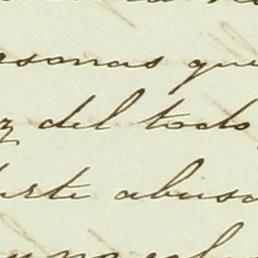 ersonas que
z del todo
arte abuso